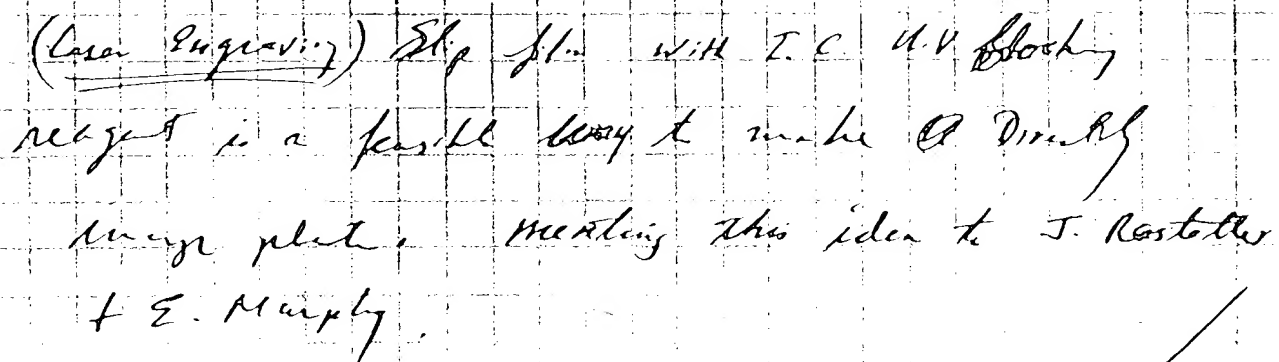 (Laser Engraving) Slip film with I.C U.V Blocking
reagent is a feasible way to make a Directly
image plate. Menting this idea to J. Rostetter
+ E. Murphy.